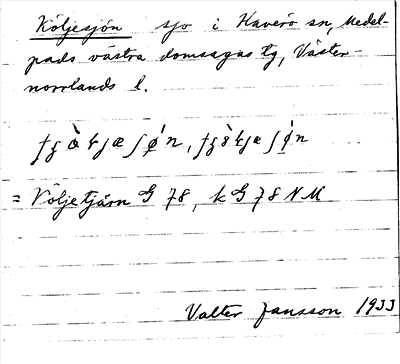 Köljesjön sjö i Haverö sn, Medel-
pads västra domsagas tg, Väster-
norrlands l.
= Völjetjärn G 78, k G 78 N M
Valter Jansson 1933